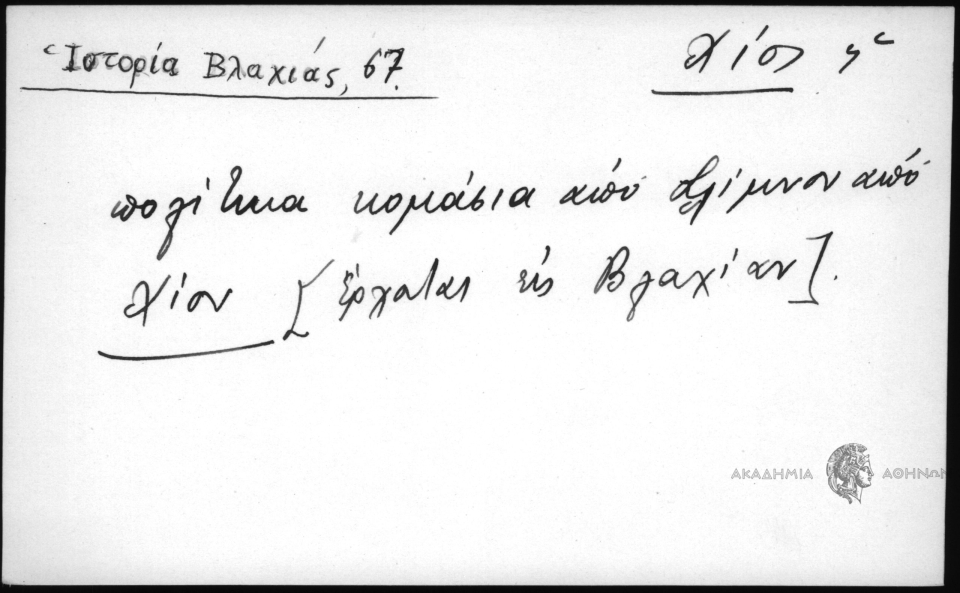 Ἱστορία Βλαχιάς, 67.
Χίος ἡ
πολίτικα κομάσια ἀπό Λίμνον ἀπό
Χίον [ἔρχεται εἰς Βλαχίαν].
ΑΚΑΔΗΜΙΑ ΑΘΗΝΩΝ